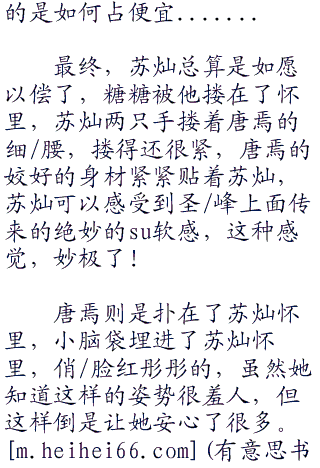 的是如何占便宜.......
最终，苏灿总算是如愿
以偿了，糖糖被他搂在了怀
里，苏灿两只手搂着唐焉的
细/腰，搂得还很紧，唐焉的
姣好的身材紧紧贴着苏灿，
苏灿可以感受到圣/峰上面传
来的绝妙的su软感，这种感
觉，妙极了！
唐焉则是扑在了苏灿怀
里，小脑袋埋进了苏灿怀
里，俏/脸红彤彤的，虽然她
知道这样的姿势很羞人，但
这样倒是让她安心了很多。
[m.heihei66.com](有意思书